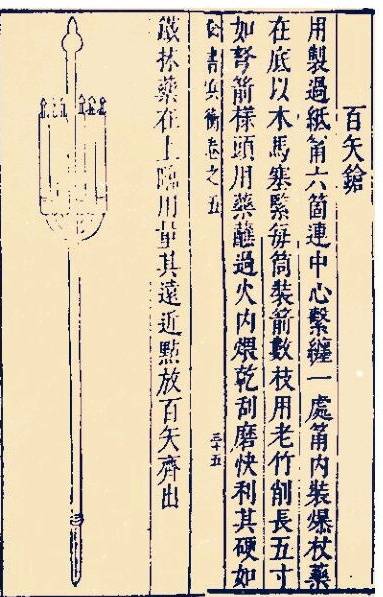 百矢鎗
用製過紙筩六箇連中心繫纏一處筩内裝爆杖藥
在底以木馬塞緊每筒裝箭數枝用老竹削長五寸
如弩箭様頭用藥蘸過火内煨乾刮磨快利其硬如
兵衡卷之五
三十五
鐵抹藥在上臨用量其遠近㸃放百矢齊出